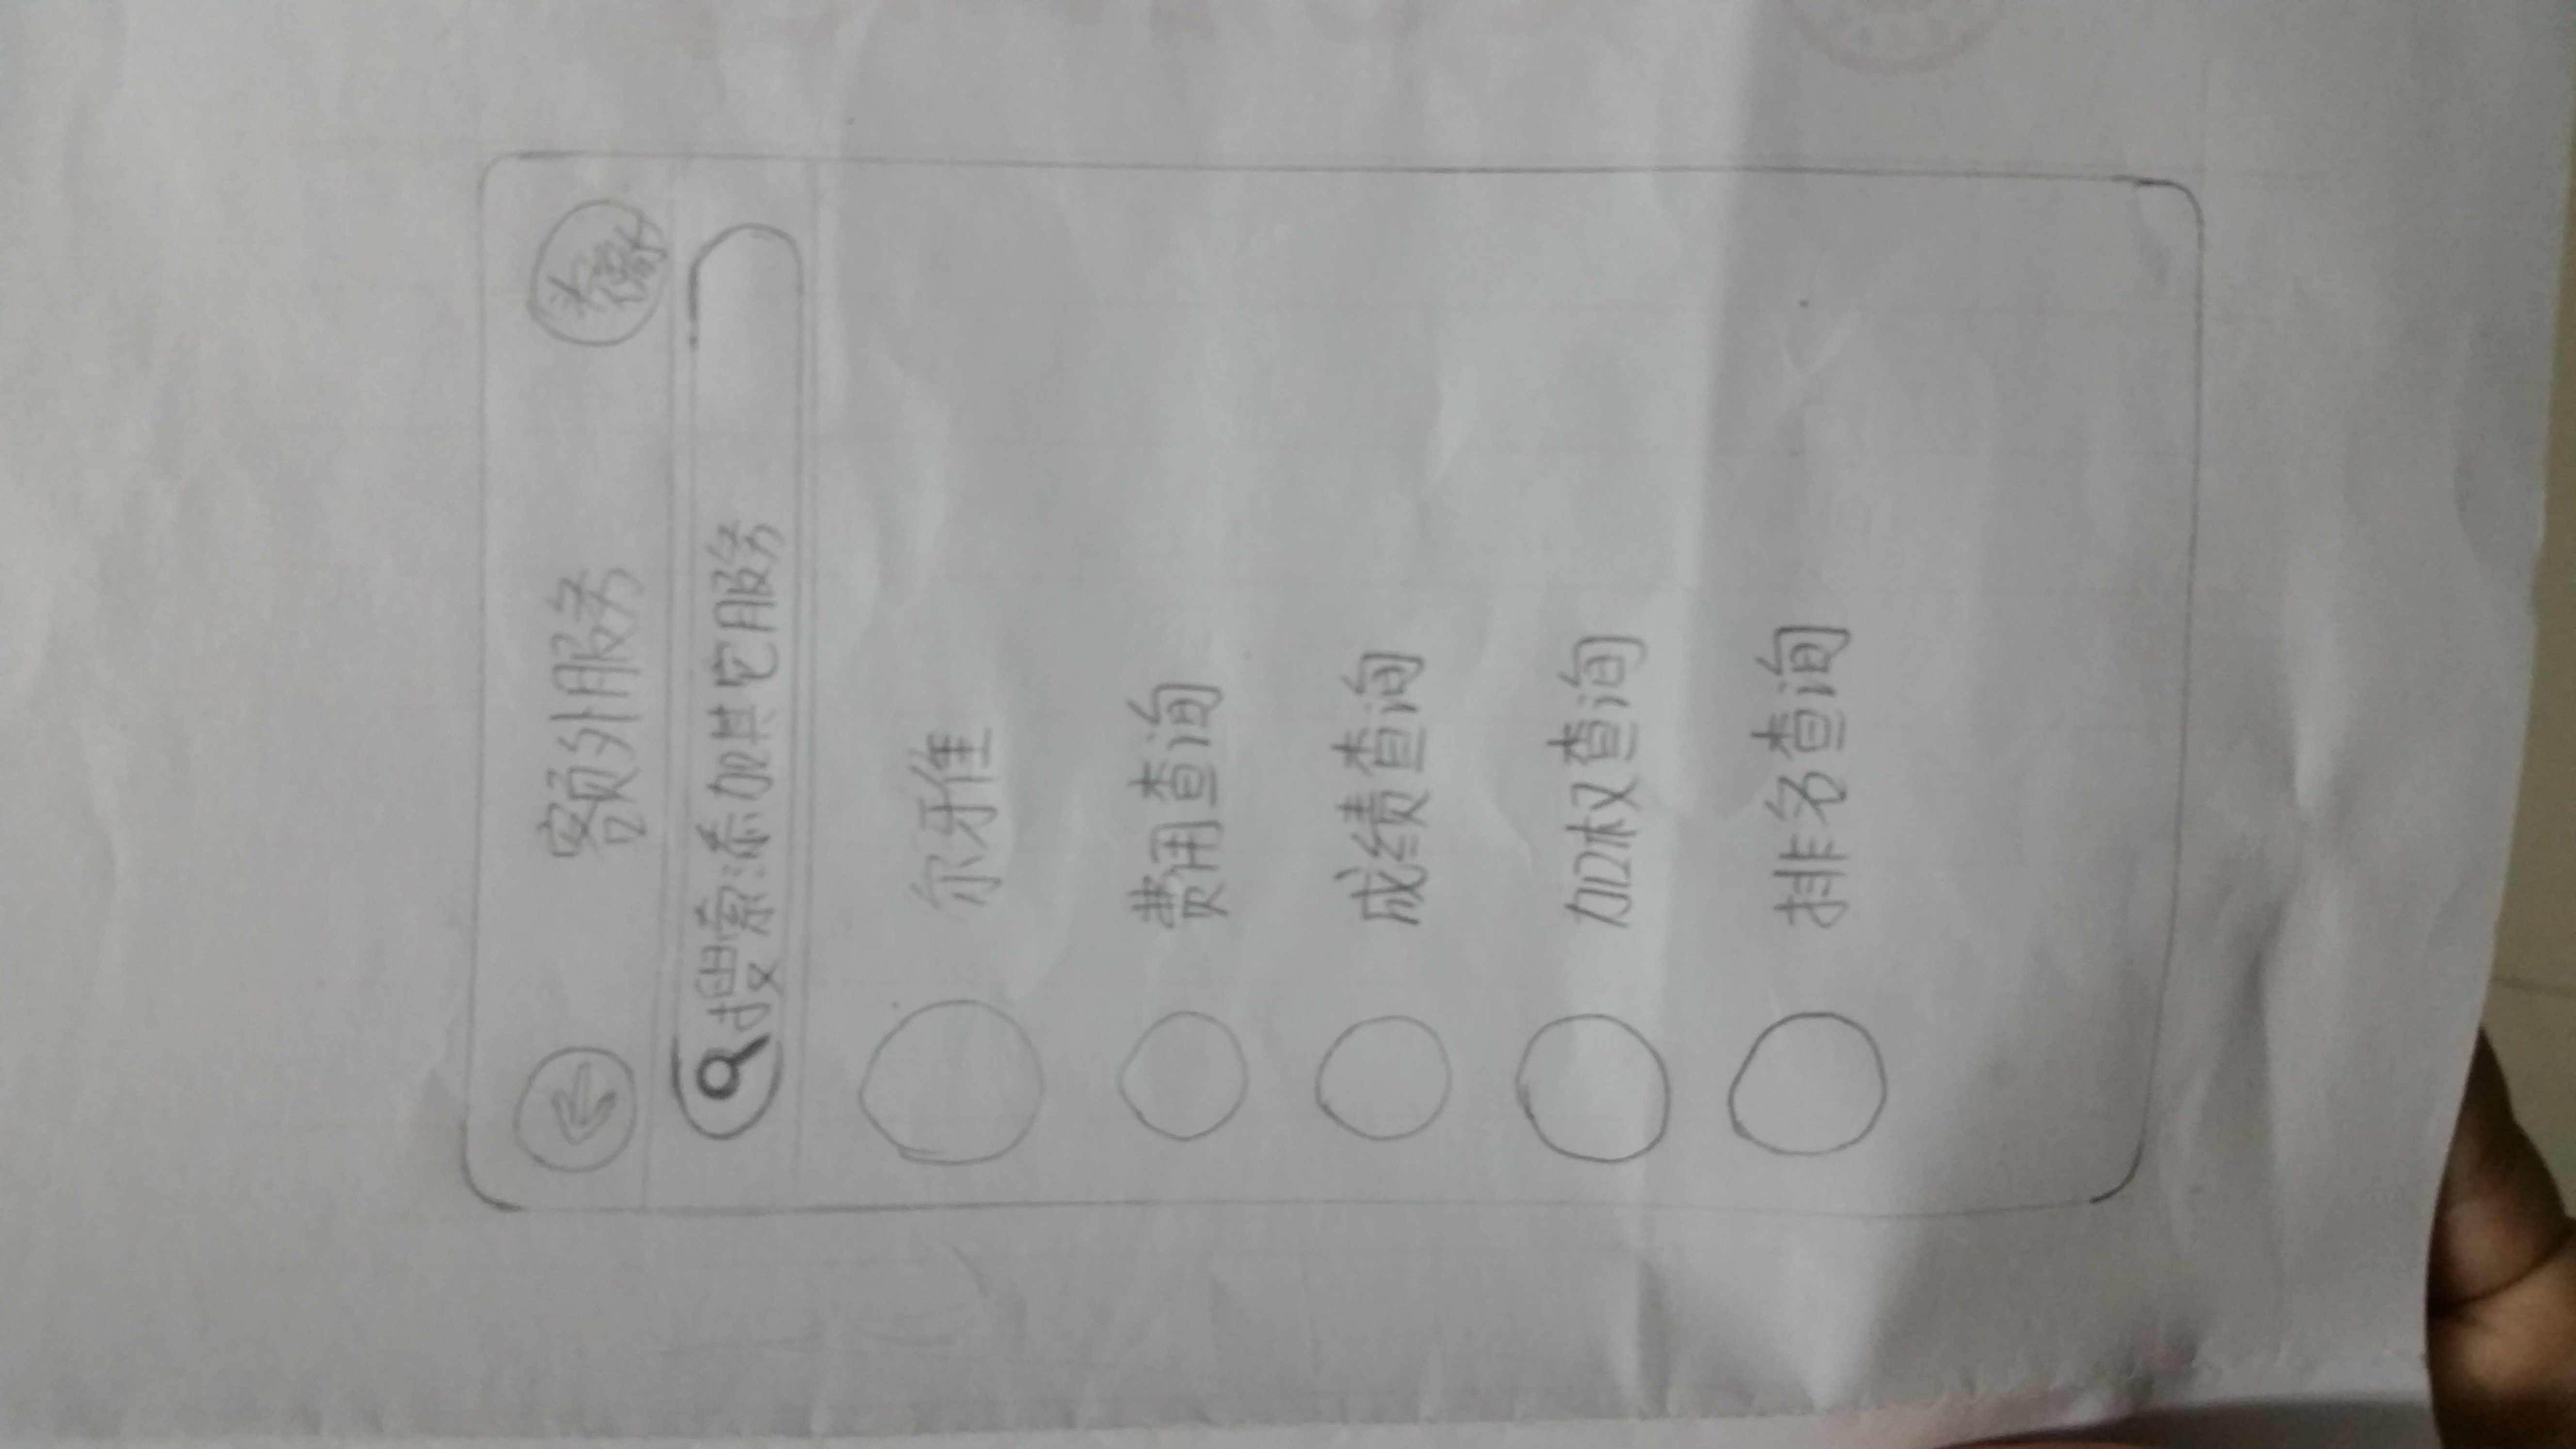 额外服务
头像
搜索添加其它服务
尔雅
费用查询
成绩查询
加权查询
排名查询